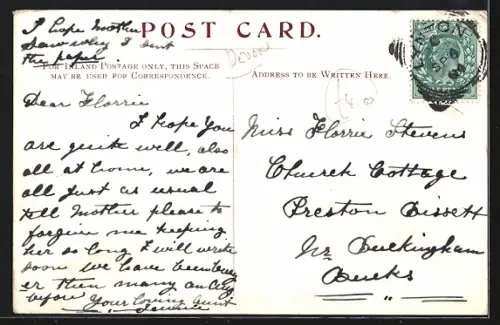 I hope Mother
saw why I sent
the paper
POST CARD.
FOR INLAND POSTAGE ONLY, THIS SPACE
MAY BE USED FOR CORRESPONDENCE.
Devon
ADDRESS TO BE WRITTEN HERE.
Dear Florrie
I hope you
are quite well, also
all at home, we are
all just as usual
tell Mother please to
forgive me keeping
her so long I will write
soon we have been busy
er then many an
before Your loving Aunt
Miss Florrie Stevens
Church Cottage
Preston Bissett
Nr Buckingham
Bucks